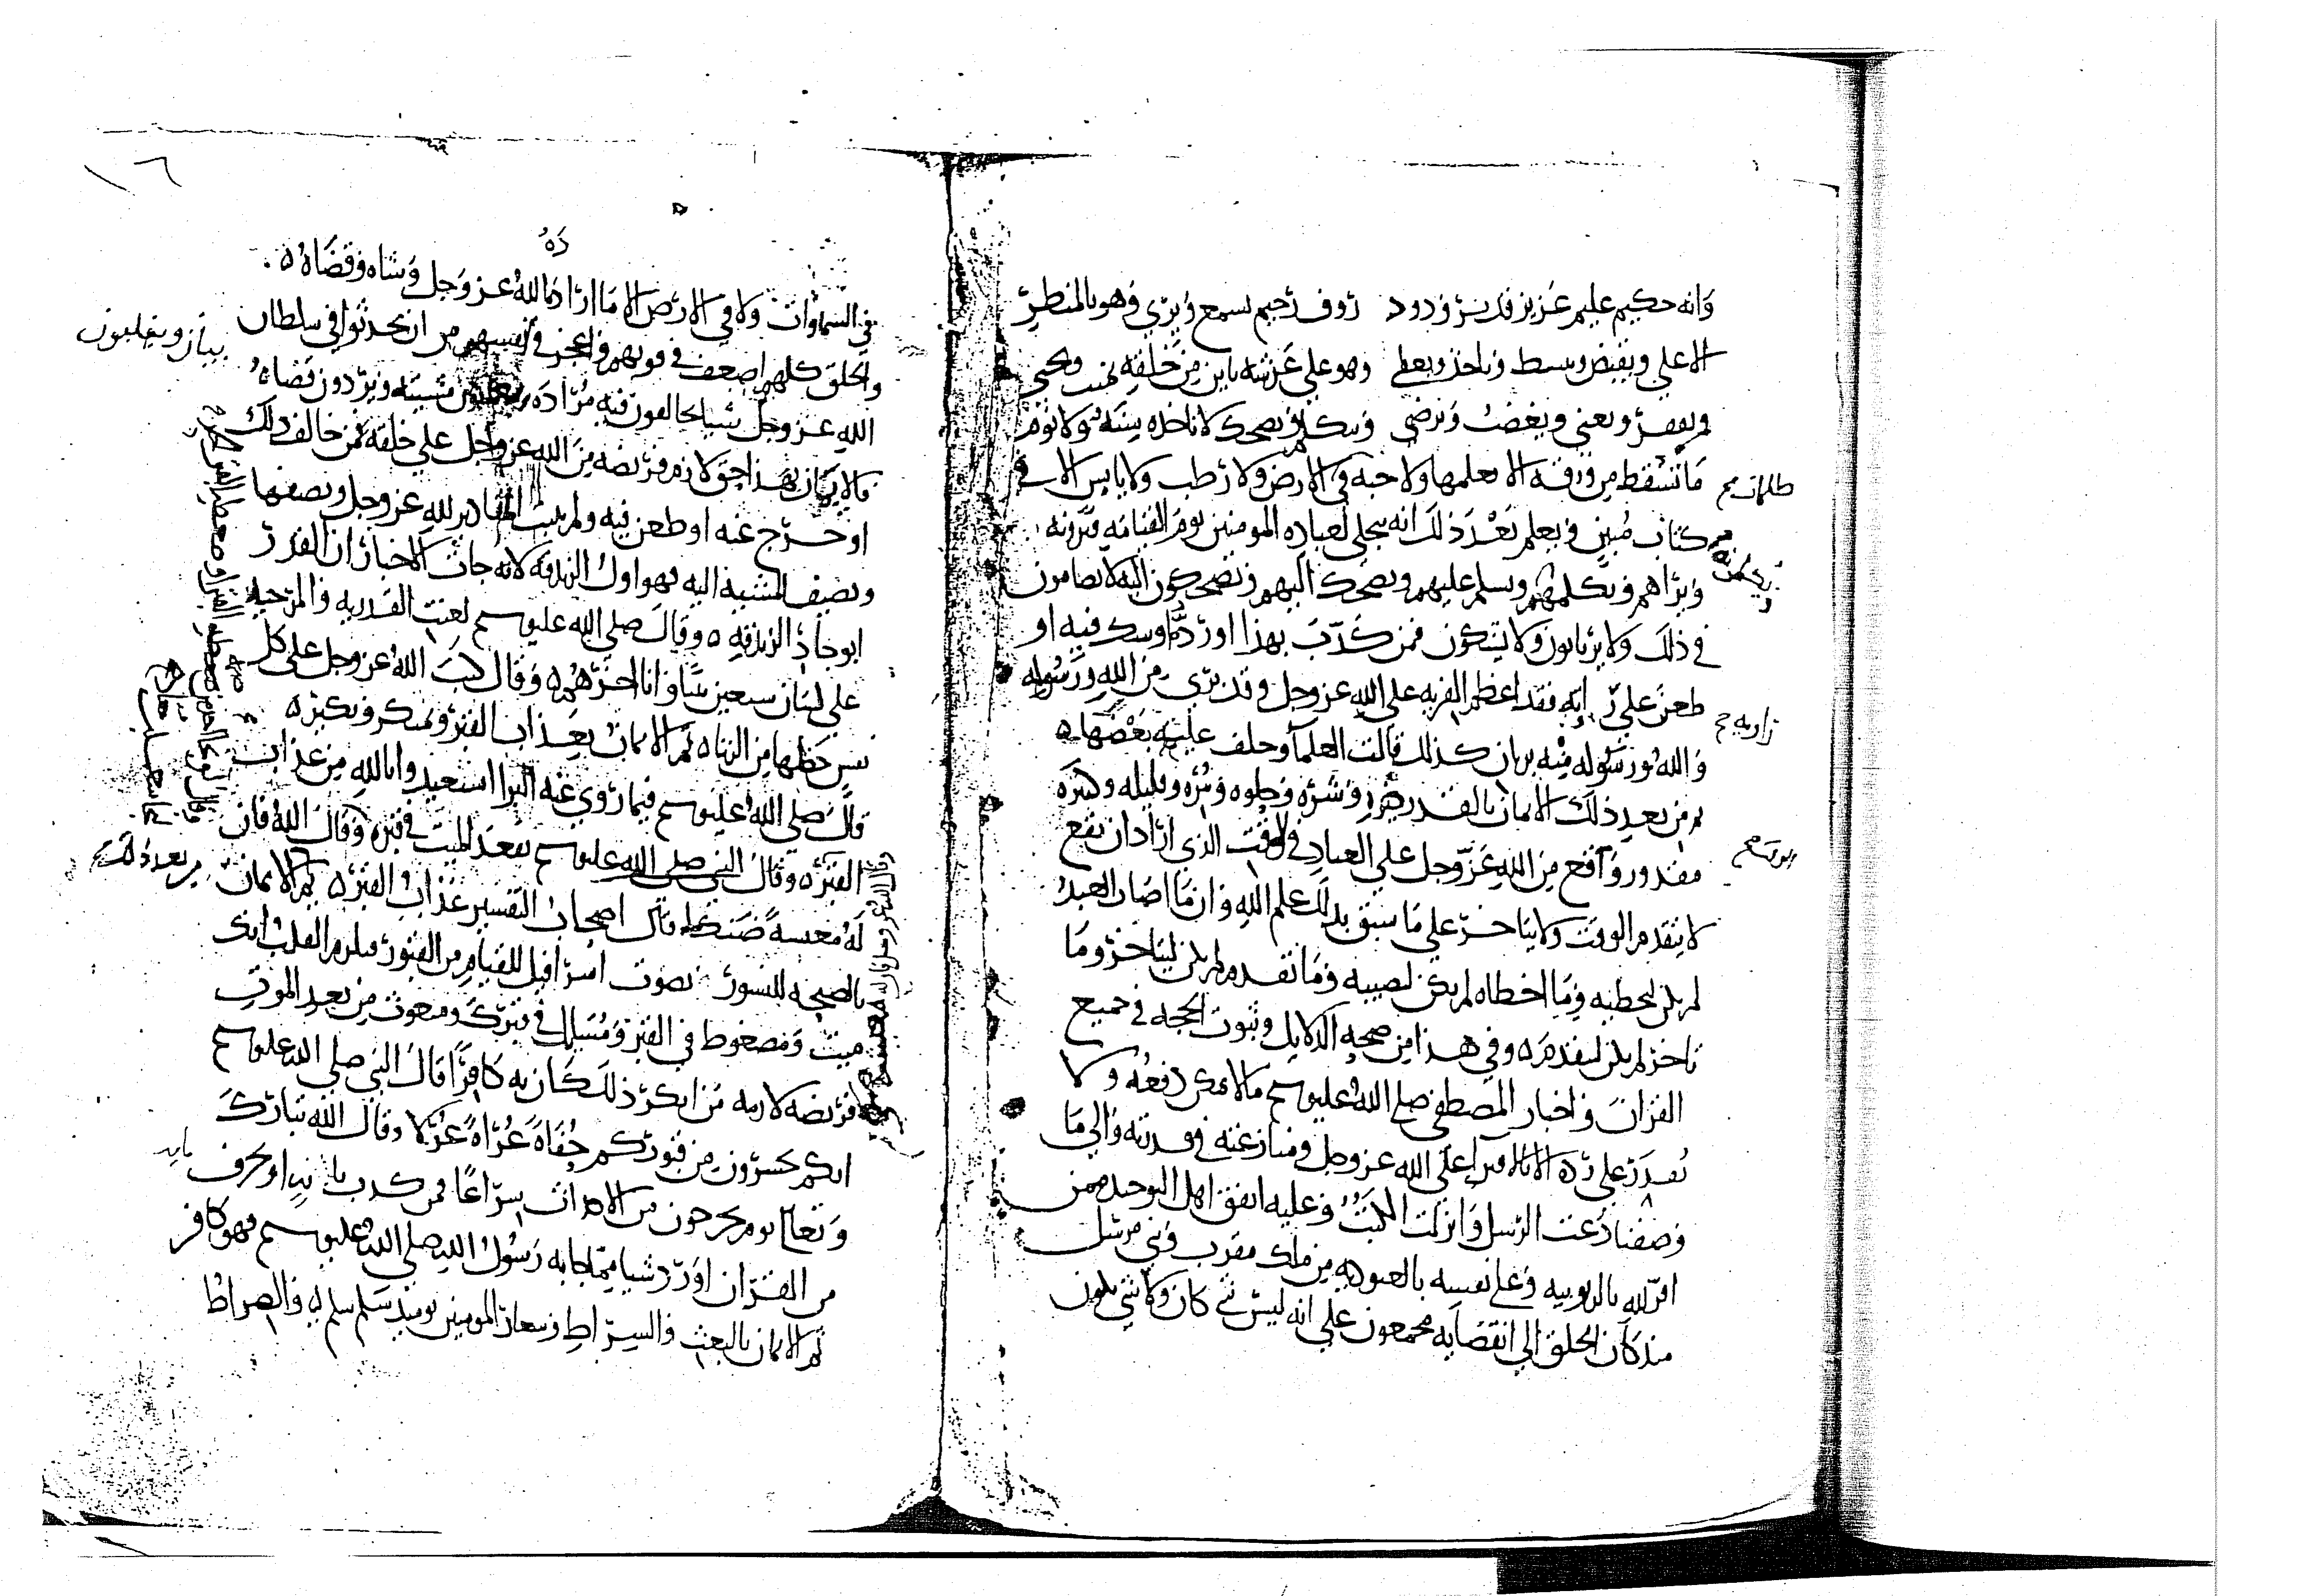 وانه حكيم عليم عزيز قدير ودود رؤف رحيم يسمع ويرى وهو بالمنظر
الاعلى ويقبض ويبسط وياخذ ويعطي وهو على عرشه باين من خلقه يميت ويحيي
ويفقر ويغني ويغضب ويرضى ويتكلم ويضحك لا تاخذه سنة ولا نوم
ما تسقط من ورقة الا يعلمها ولا حبة في الارض ولا رطب ولا يابس الا في
كتاب مبين ويعلم بعد ذلك انه يتجلى لعباده المومنين يوم القيامة فيرونه
ويراهم ويكلمهم ويسلم عليهم ويضحك اليهم ويضحكون اليه لا يضامون
في ذلك ولا يرتابون ولا يشكون فمن كذب بهذا او رده او شك فيه او
طعن على راويه فقد اعظم الفرية على الله عز وجل وقد بري من الله ورسوله
والله ورسوله منه بريان كذلك قالت العلما وحلف عليه بعضها ه
ثم من بعد ذلك الايمان بالقدر خيره وشره وحلوه ومره وقليله وكثيره
مقدور واقع من الله عز وجل على العباد في الوقت الذي اراد ان يقع
لا يتقدم الوقت ولا يتاخر على ما سبق بذلك علم الله وان ما اصاب العبد
لم يكن ليخطيه وما اخطاه لم يكن ليصيبه وما تقدم لم يكن ليتاخر وما
تاخر لم يكن ليتقدم ه وفي هذا من صحة الدلايل وثبوت الحجة في جميع
القران واخبار المصطفى صلى الله عليه وسلم ما لا يمكن دفعه ولا
يقدر على رده الا بالافترا على الله عز وجل ومنازعته في قدرته والى ما
وصفنا دعت الرسل وانزلت الكتب وعليه اتفق اهل التوحيد ممن
اقر لله بالربوبيه وعلى نفسه بالعبوديه من ملك مقرب ونبي مرسل
منذ كان الخلق الى انقضايه مجمعون على انه ليس شي كان ولا شي يكون
١٦
في السماوات ولا في الارض الا ما اراده الله عز وجل وشاه وقضاه ه
والخلق كلهم اضعف في قوتهم واعجز في انفسهم من ان يحدثوا في سلطان
الله عز وجل شيا يخالفون فيه مراده ويغلبون مشيته ويردون قضاه
فالايمان بهذا حق لازم فريضه من الله عز وجل على خلقه فمن خالف ذلك
او خرج عنه او طعن فيه ولم يثبت المقادير لله عز وجل ويضفها
ويضيف المشية اليه فهو اول الزندقه لانه جات الاخبار ان القدر
ابو جاد الزندقه ه وقال صلى الله عليه وسلم لعنت القدريه والمرجيه
على لسان سبعين نبيا وانا اخرهم ه وقال كتب الله عز وجل على كل
نفس حظها من الزنا ه ثم الايمان بعذاب القبر وبمنكر ونكير ه
قال صلى الله عليه وسلم فيما روى عنه البرا استعيذوا بالله من عذاب
القبر ه وقال النبي صلى الله عليه وسلم يقعد الميت في قبره وقال الله فان
له معيشة ضنكا قال اصحاب التفسير عذاب القبر ه ثم الايمان من بعد ذلك
بالصيحه للنشور بصوت اسرافيل للقيام من القبور فيلزم القلب انك
ميت ومضغوط في القبر ومسايل في قبرك ومبعوث من بعد الموت
فريضه لازمه من انكر ذلك كان به كافرا قال النبي صلى الله عليه وسلم
انكم تحشرون من قبوركم حفاة عراة غرلا وقال الله تبارك
وتعالى يوم يخرجون من الاجداث سراعا فمن كذب باية او بحرف
من القران او رد شيا مما جا به رسول الله صلى الله عليه وسلم فهو كافر
ثم الايمان بالبعث والصراط وشعار المومنين يوميذ سلم سلم والصراط